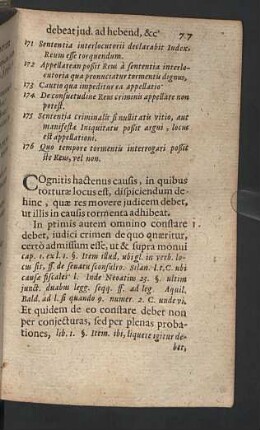 debeat jud. ad hebend, &c. 77
171 Sententia interlocutorii declarabit Indexi
Reum esse torquendum.
172 Appellare an possit Reus à sententia interlo-
cutoria qua pronunciatur tormentis dignus,
173 Cautio qua impeditur ea appellatio
174 De consuetudine Reus criminis appellare non
potest.
175 Sententia criminalis si nullitatis vitio, aut
manifesta Iniquitatis possit argui, locus
est appellationi.
176 Quo tempore tormentis interrogari possit
sic Reus, vel non.
COgnitis hactenus causis, in quibus
torturæ locus est, dispiciendum de-
hinc, quæ res movere judicem debet,
ut illis in causis tormenta adhibeat.
In primis autem omnino constare 1.
debet, judici crimen de quo quæritur,
certò admissum esse, ut & supra monui
cap. 1. ex l. 1. §. Item illud, ubi gl. in verb. lo-
cus sit, ff. de senatusconsulto. Silan. l. r. C. ubi
causæ fiscales l. Inde Neratius 23. §. ultim
junct. duabus legg. seqq. ff. ad leg. Aquil.
Bald. ad l. si quando 9. numer. 2. C. unde vi.
Et quidem de eo constare debet non
per conjecturas, sed per plenas proba-
tiones, leb. 1. §. Item. ibi, liquere igitur de-
bet,